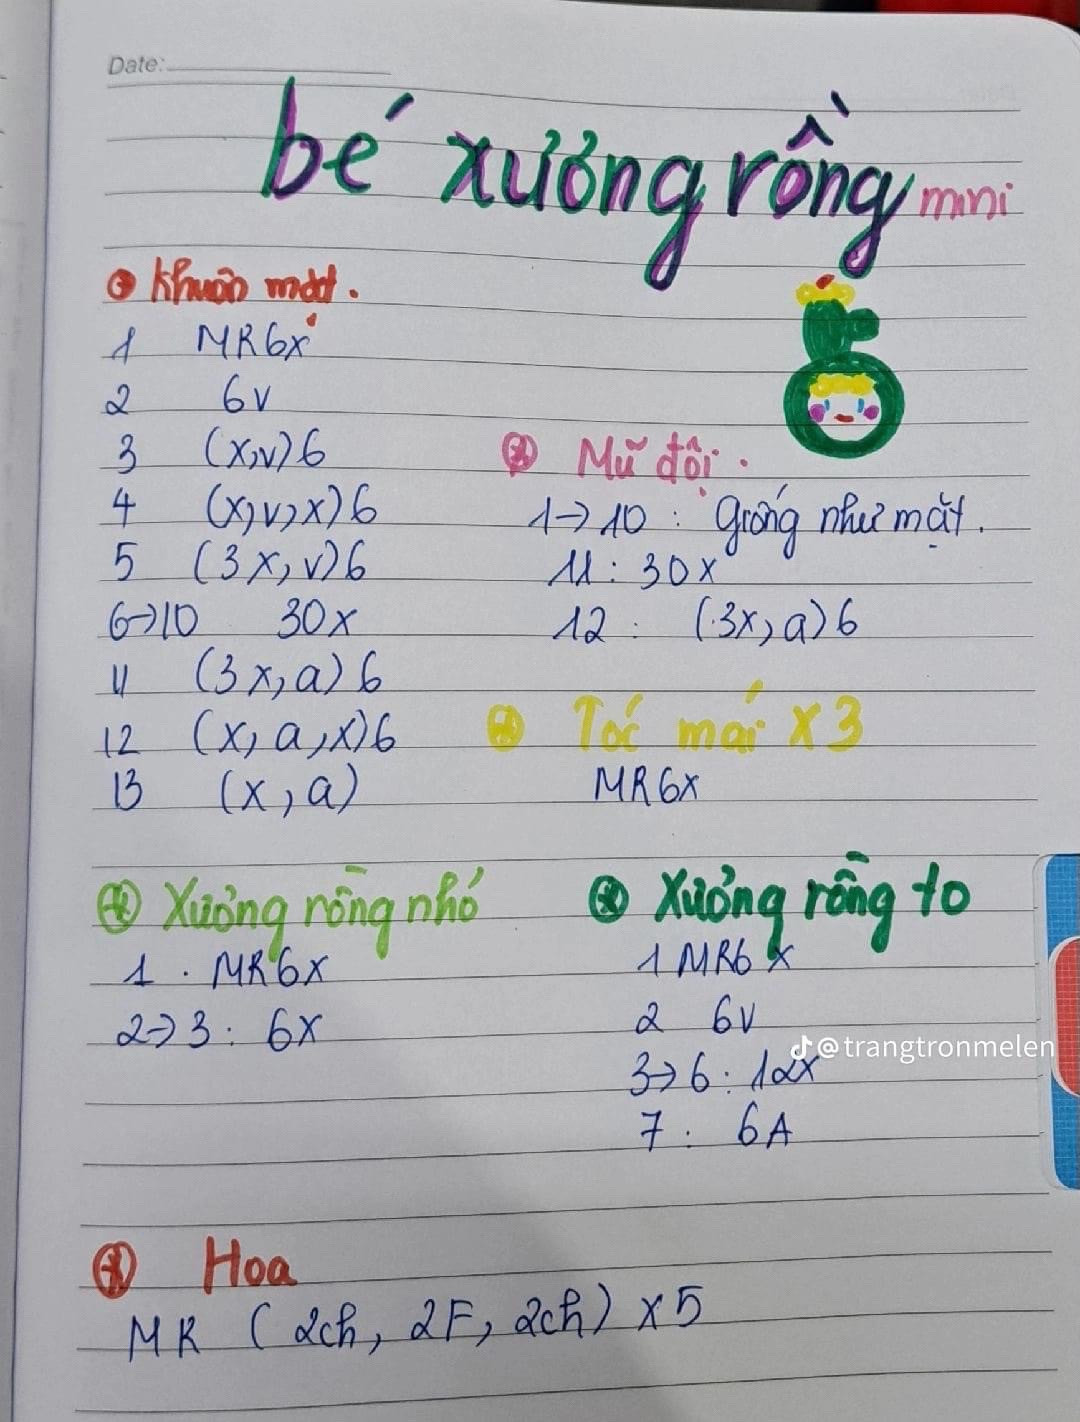 Date:
bé xương rồng mini
Khuôn mặt.
1 MR6x
2 6v
3 (x,v)6
4 (x,v,x)6
5 (3x,v)6
6→10 30x
11 (3x,a)6
12 (x,a,x)6
13 (x,a)
Mũ đội.
1→10: giống như mặt.
11: 30x
12: (3x,a)6
Tóc mái x3
MR6x
Xương rồng nhỏ
1. MR6x
2→3: 6x
Xương rồng to
1 MR6x
2 6v
3→6: 12x
7: 6A
@trangtronmelen
Hoa
MR (2ch, 2F, 2ch) x5